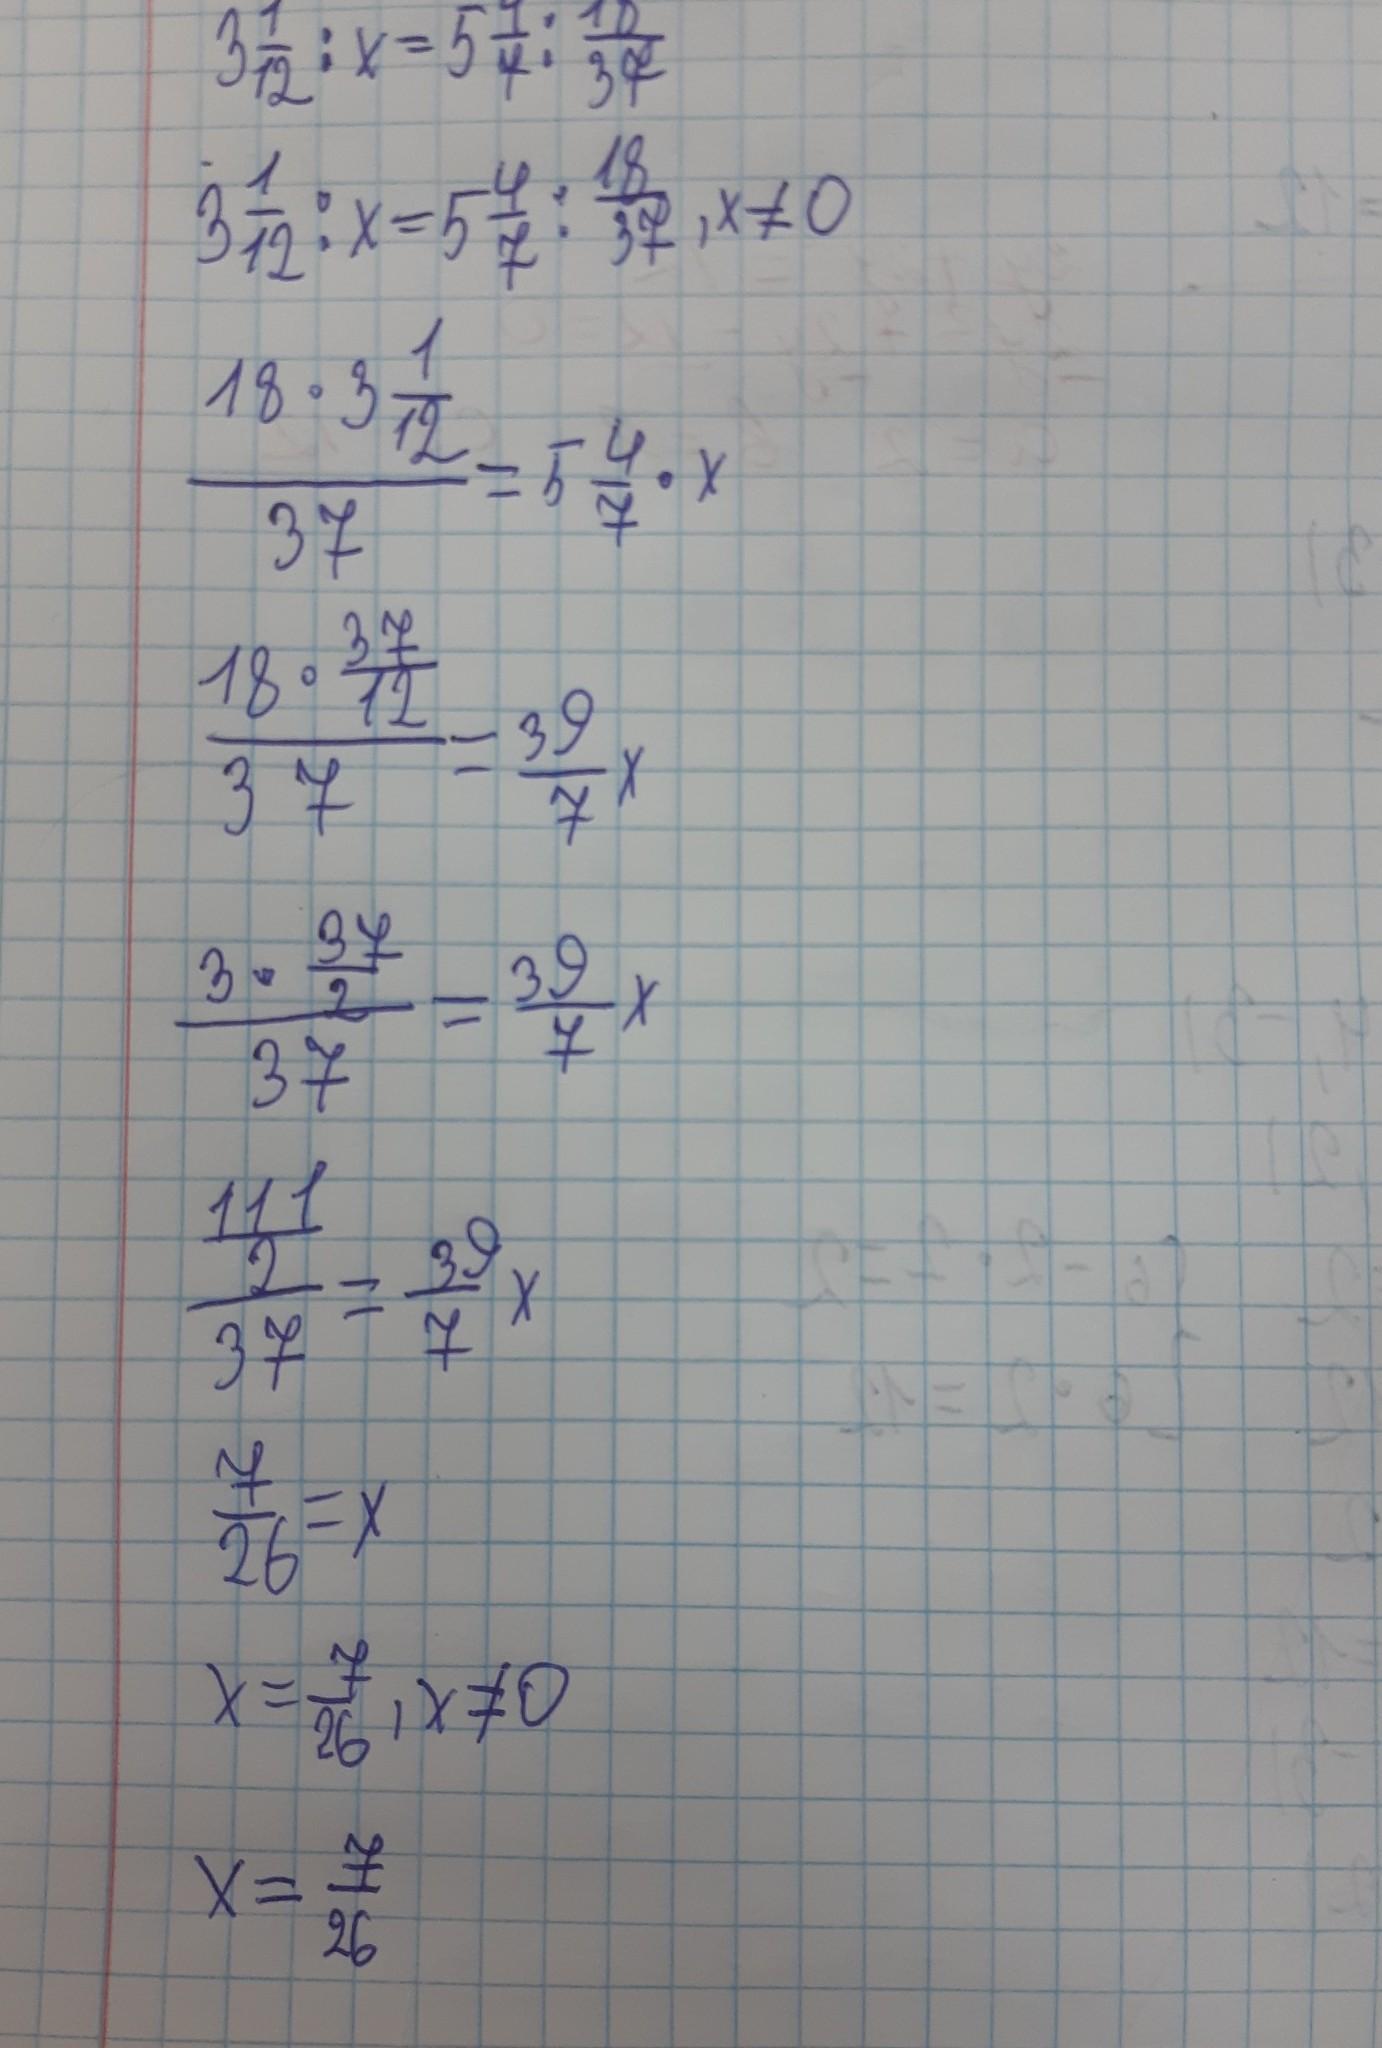 3 1/12 : x = 5 4/7 : 18/37
3 1/12 : x = 5 4/7 : 18/37, x ≠ 0
(18 · 3 1/12)/37 = 5 4/7 · x
(18 · 37/12)/37 = 39/7 x
(3 · 37/2)/37 = 39/7 x
(111/2)/37 = 39/7 x
7/26 = x
x = 7/26, x ≠ 0
x = 7/26